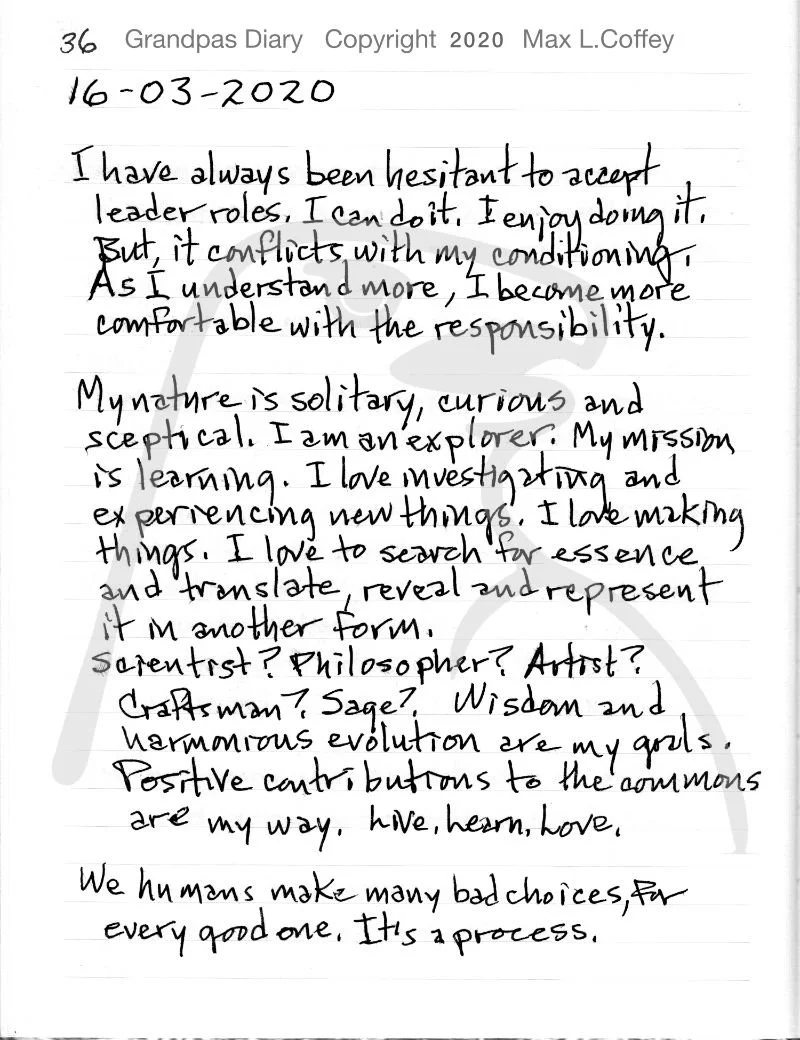 36 Grandpas Diary Copyright 2020 Max L.Coffey
16-03-2020
I have always been hesitant to accept
leader roles. I can do it. I enjoy doing it.
But, it conflicts with my conditioning.
As I understand more, I become more
comfortable with the responsibility.
My nature is solitary, curious and
sceptical. I am an explorer. My mission
is learning. I love investigating and
experiencing new things. I love making
things. I love to search for essence
and translate, reveal and represent
it in another form.
Scientist? Philosopher? Artist?
Craftsman? Sage? Wisdom and
harmonious evolution are my goals.
Positive contributions to the commons
are my way. Live, Learn, Love.
We humans make many bad choices, for
every good one. It's a process.